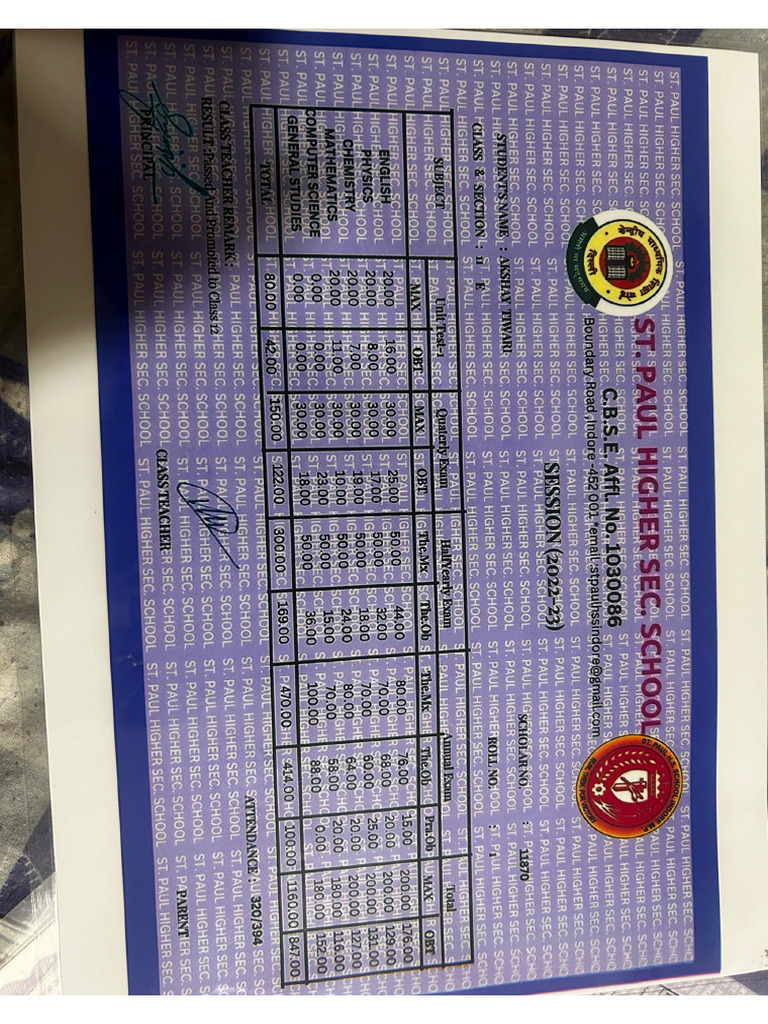 ST. PAUL HIGHER SEC. SCHOOL
C.B.S.E. Affl. No. 1030086
Boundary Road ,Indore -452 001 *email :stpaulhssindore@gmail.com
केन्द्रीय माध्यमिक शिक्षा बोर्ड
दिल्ली
SESSION (2022-23)
STUDENTS NAME : AKSHAY TIWARI SCHOLAR NO. : 11870
CLASS & SECTION : 11 E ROLL NO. : 1
SUBJECT Unit Test-1 Quaterly Exam Halfyearly Exam Annual Exam Total
MAX OBT MAX OBT The.Mx The.Ob The.Mx The.Ob Pra.Ob MAX OBT
ENGLISH 20.00 16.00 30.00 25.00 50.00 44.00 80.00 76.00 15.00 200.00 176.00
PHYSICS 20.00 8.00 30.00 17.00 50.00 32.00 70.00 68.00 20.00 200.00 129.00
CHEMISTRY 20.00 7.00 30.00 19.00 50.00 18.00 70.00 60.00 25.00 200.00 131.00
MATHEMATICS 20.00 11.00 30.00 10.00 50.00 24.00 80.00 64.00 20.00 200.00 127.00
COMPUTER SCIENCE 0.00 0.00 30.00 23.00 50.00 15.00 70.00 58.00 20.00 180.00 116.00
GENERAL STUDIES 0.00 0.00 30.00 18.00 50.00 36.00 100.00 88.00 0.00 180.00 152.00
TOTAL 80.00 42.00 150.00 122.00 300.00 169.00 470.00 414.00 100.00 1160.00 847.00
CLASS TEACHER REMARK : ATTENDANCE : 320/394
RESULT :Passed And Promoted to Class 12
PRINCIPAL CLASS TEACHER PARENT